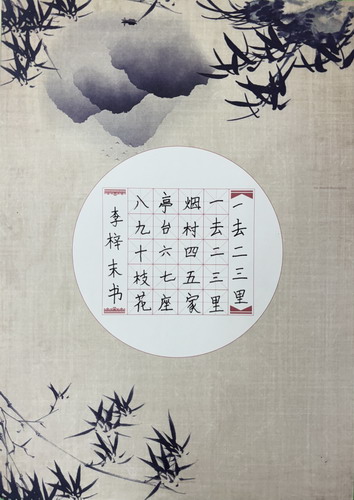 一去二三里
一去二三里
烟村四五家
亭台六七座
八九十枝花
李梓末书